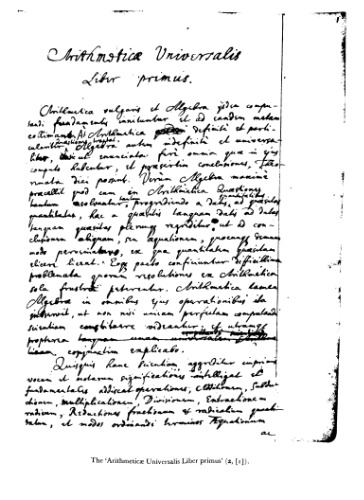 1
Arithmeticæ Universalis
Liber primus.
Arithmetica vulgaris et Algebra ijsdem compu-
tandi fundamentis innituntur et ad eandem metam
collimant. At Arithmetica definitè et parti-
Quæstiones tractat
culariter, Algebra autem indefinitè et universa-
liter, ita ut enunciata ferè omnia quæ in
computo habentur, et præsertim conclusiones, Theo-
remata dici possint. Verùm Algebra maximè
præcellit quod cum in Arithmetica Quæstiones
tantum resolvantur progrediendo a datis ad quæsitas
quantitates, hæc a quæsitis tanquam datis ad datas
tanquam quæsitas plerumq regreditur, ut ad con-
clusionem aliquam, seu æquationem, quocunq demum
modo perveniatur, ex qua quantitatem quæsitam
elicere liceat. Eoq pacto conficiuntur difficillima
problemata quorum resolutiones ex Arithmetica
sola frustra peterentur. Arithmetica tamen
Algebræ in omnibus ejus operationibus ita
subservit, ut non nisi unicam perfectam computandi
scientiam constituere videantur; et utramq
propterea
conjunctim explicabo.
Quisquis hanc scientiam aggreditur imprimis
vocum et notarum significationes intelligat et
fundamentales addiscat operationes, Additionem, Subduc-
tionem, multiplicationem, Divisionem, Extractionem
radicum, Reductiones fractionum et radicalium quanti-
tatum, et modos ordinandi terminos Æquationum
ac
The 'Arithmeticæ Universalis Liber primus' (2, [1]).